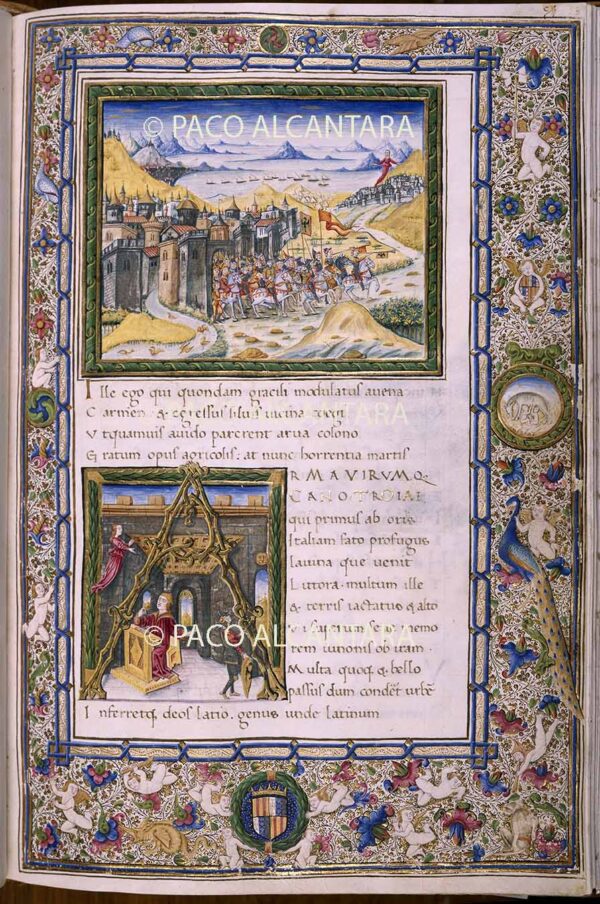 © PACO ALCANTARA
Ille ego qui quondam gracili modulatus auena
Carmen & egressus siluis uicina coegi
Vt quamuis auido parerent arua colono
Gratum opus agricolis: at nunc horrentia martis
RMA VIRUMQ
CANO TROIAE
qui primus ab oris
Italiam fato profugus
lauina que uenit
Littora. multum ille
& terris iactatus & alto
ui superum seuę memo
rem iunonis ob iram.
Multa quoq; & bello
passus dum conderet urbē
Inferretq; deos latio. genus unde latinum
© PACO ALCANTARA